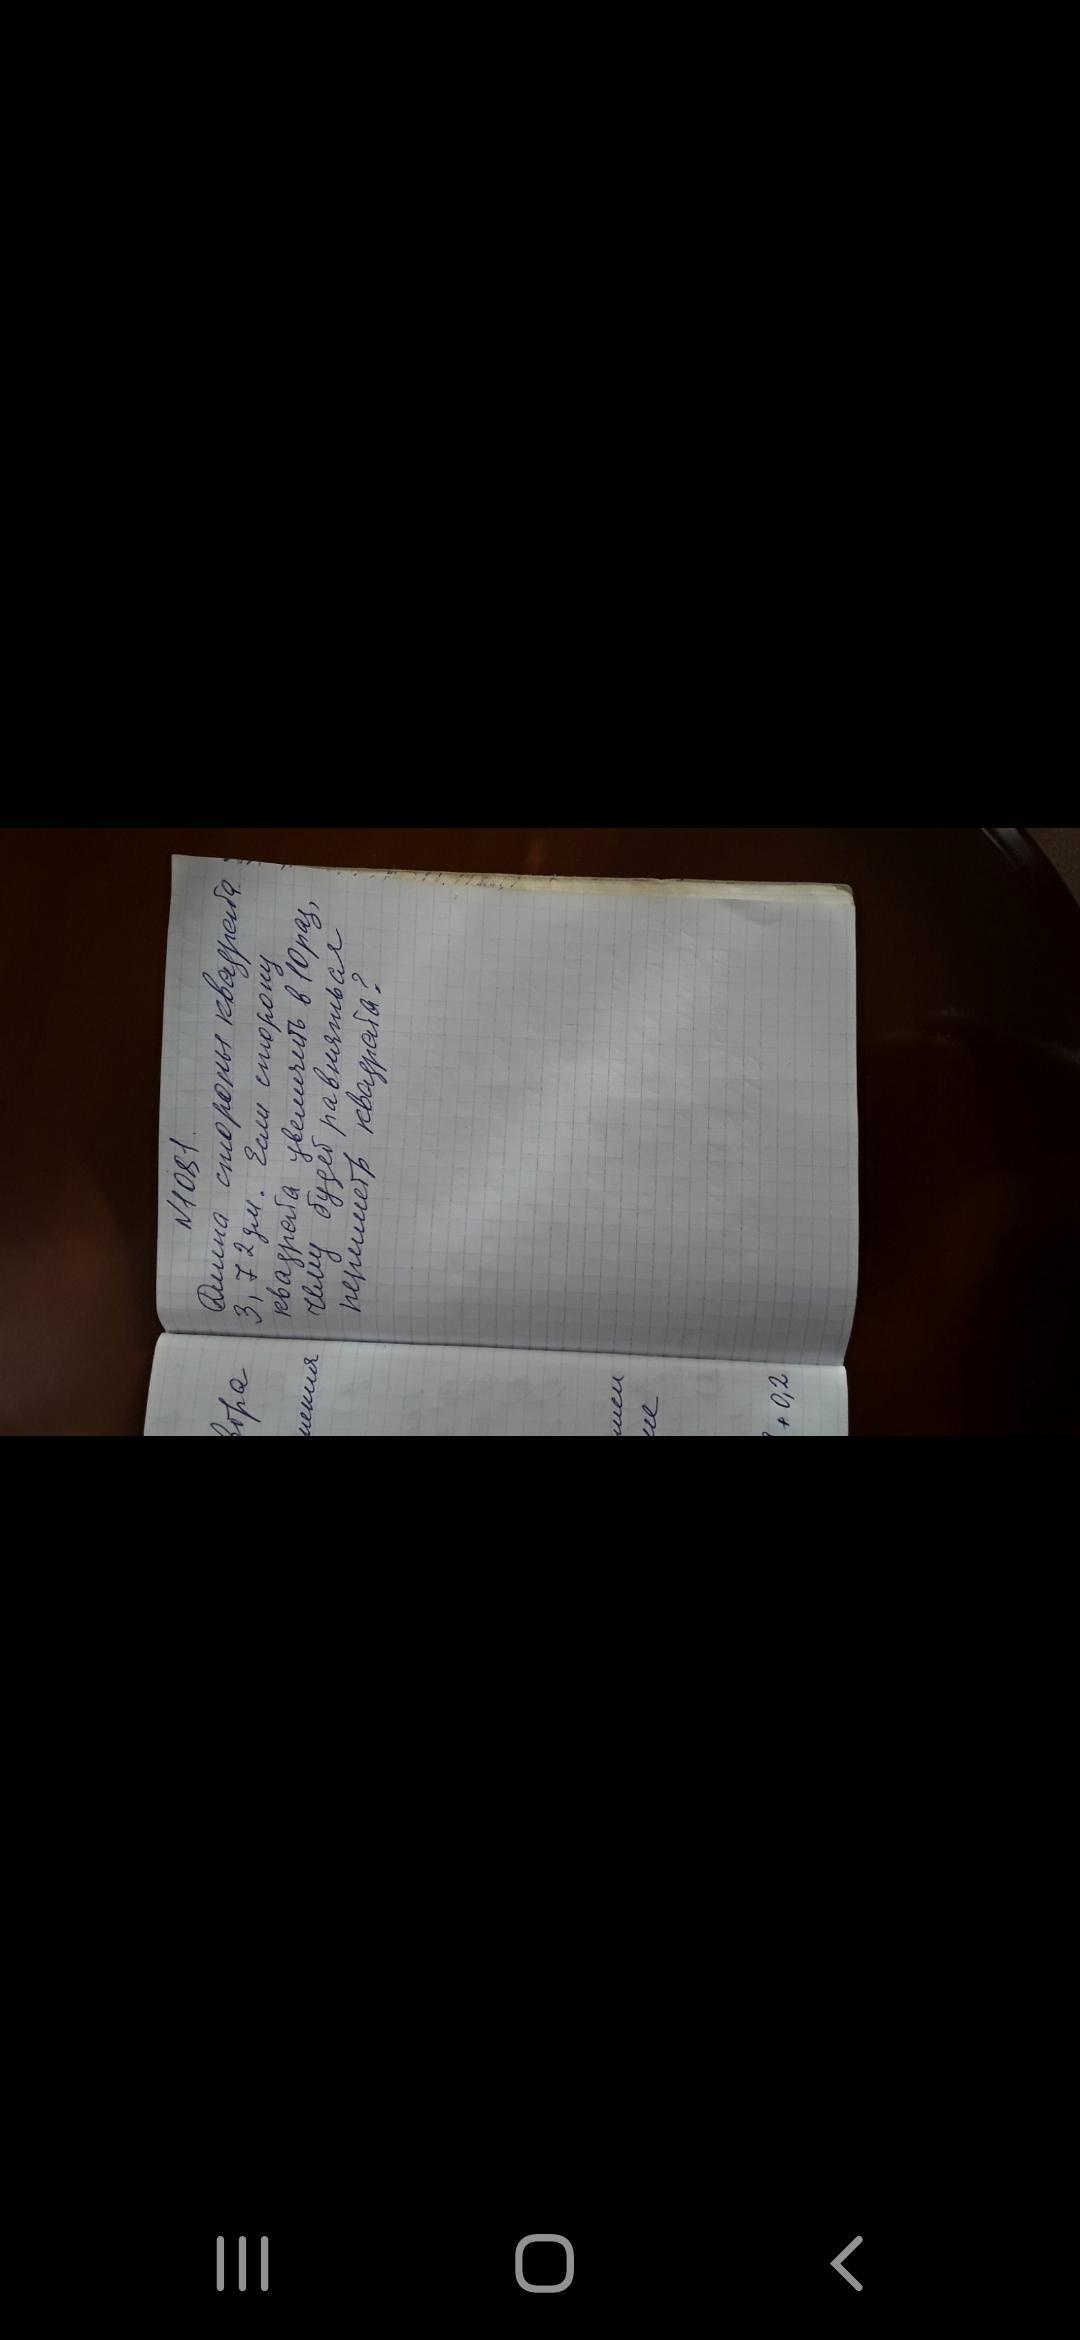 N1081.
Длина стороны квадрата
3,72дм. Если сторону
квадрата увеличить в 10 раз,
чему будет равняться
периметр квадрата?
+ 0,2